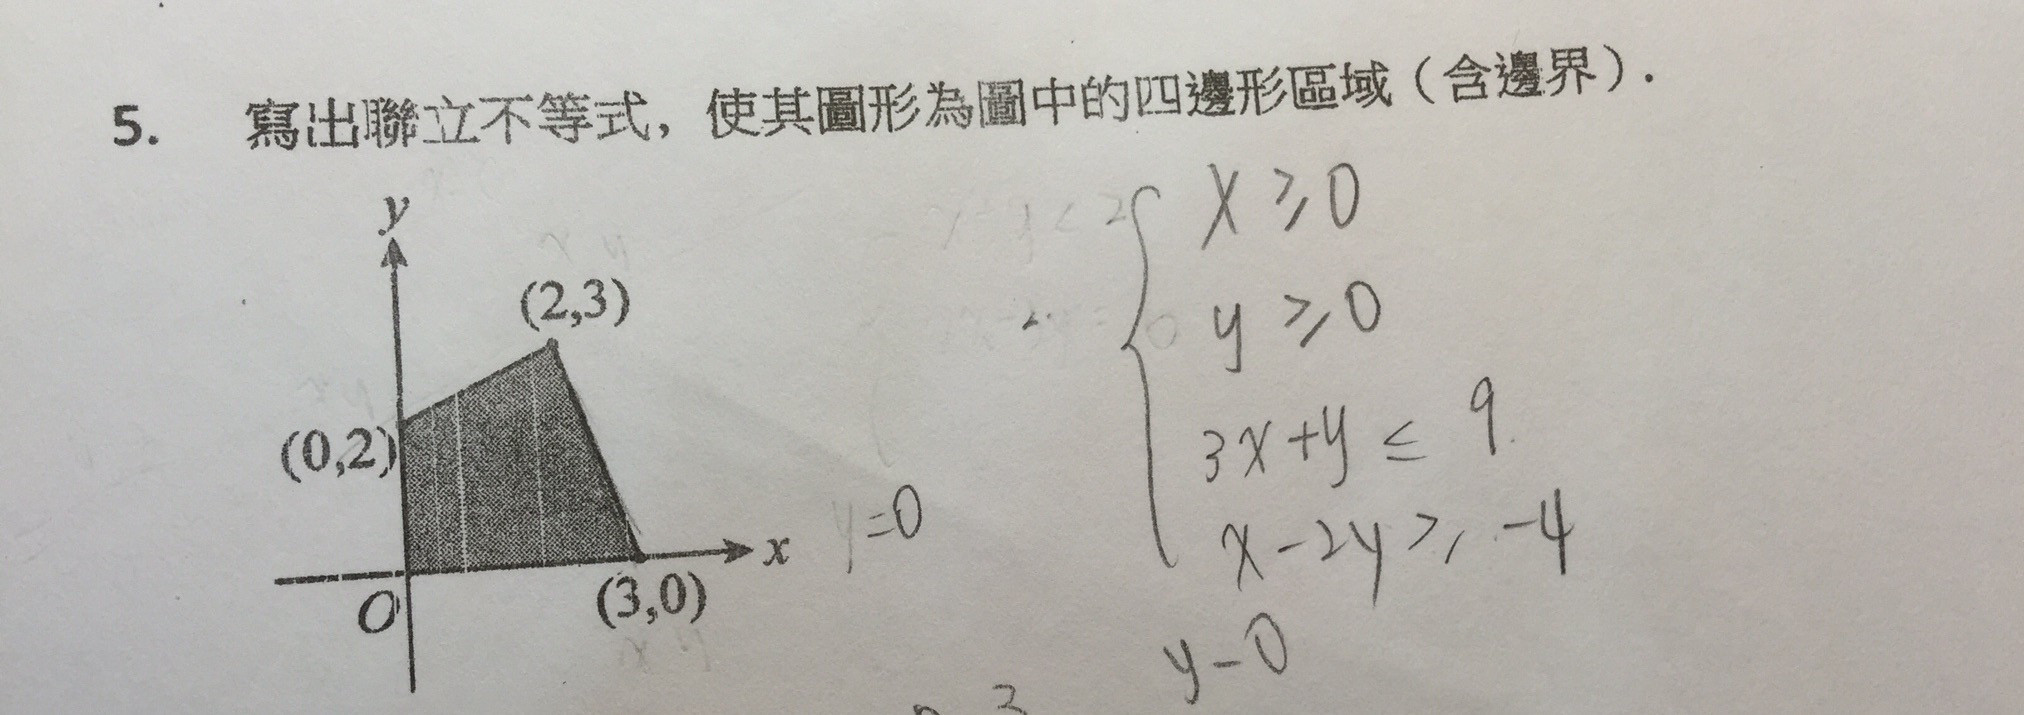 5. 寫出聯立不等式，使其圖形為圖中的四邊形區域（含邊界）.
y
(2,3)
(0,2)
x
O
(3,0)
y=0
x ≥ 0
y ≥ 0
3x+y ≤ 9
x-2y ≥ -4
y-0